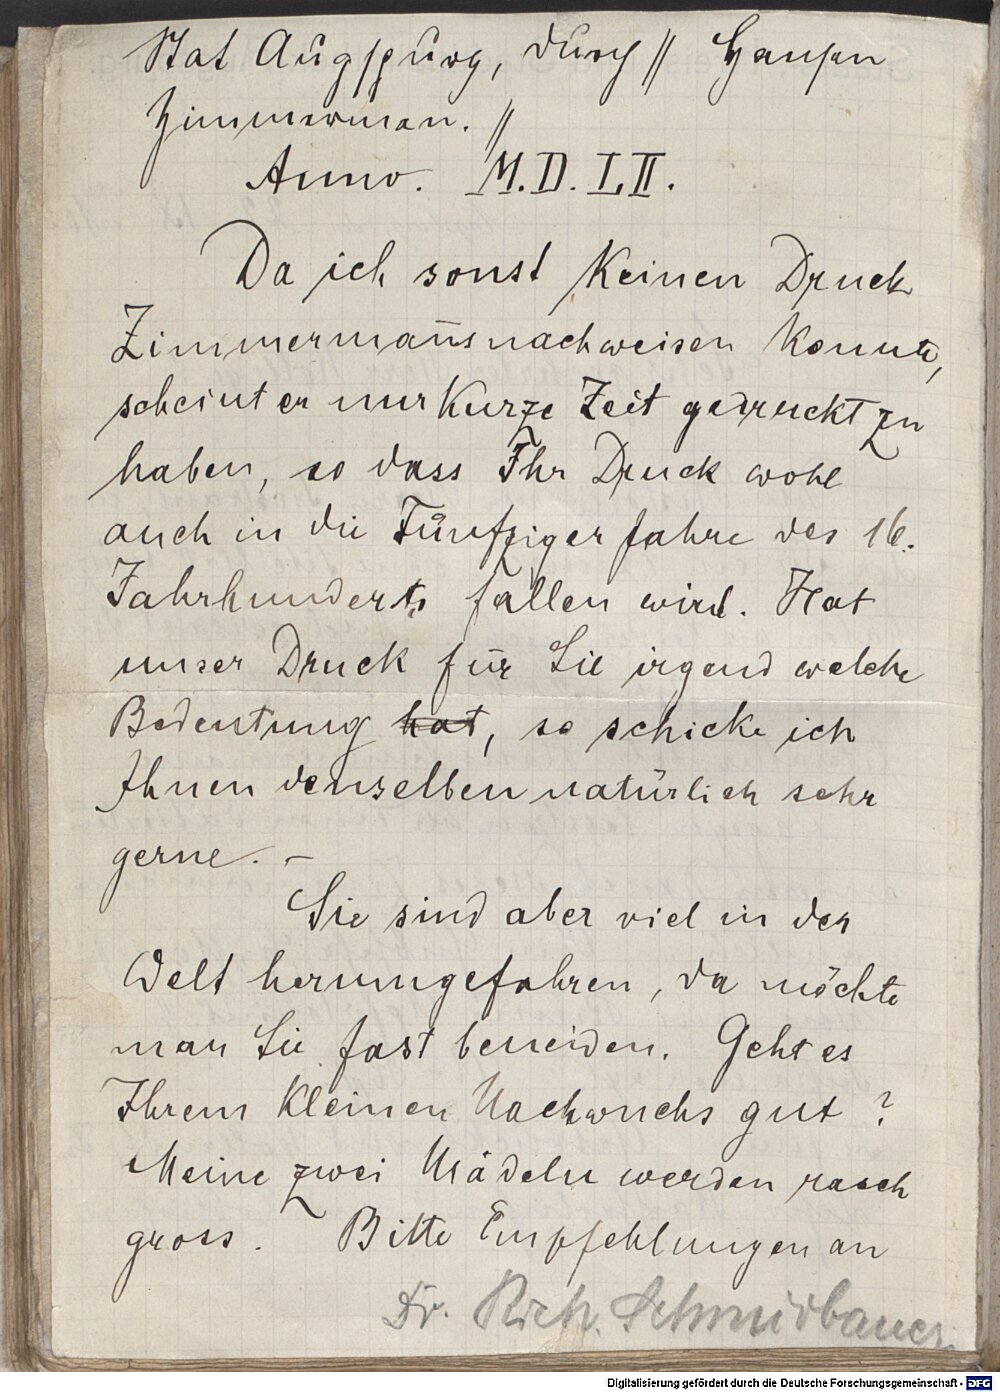 Stat Augspurg, durch // Hansen
Zimmerman. //
Anno. M.D.LII.
Da ich sonst keinen Druck
Zimmermañs nachweisen konnte,
scheint er nur kurze Zeit gedruckt zu
haben, so dass Ihr Druck wohl
auch in die Fünfziger Jahre des 16.
Jahrhunderts fallen wird. Hat
unser Druck für Sie irgend welche
Bedeutung hat, so schicke ich
Ihnen denselben natürlich sehr
gerne. –
Sie sind aber viel in der
Welt herumgefahren, da möchte
man Sie fast beneiden. Geht es
Ihrem kleinen Nachwuchs gut ?
Meine zwei Mädeln werden rasch
gross. Bitte Empfehlungen an
Dr. Rich. Schmidbauer.
Digitalisierung gefördert durch die Deutsche Forschungsgemeinschaft - DFG